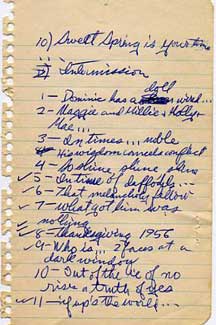 10) Sweet Spring is your time
2) Intermission
doll
1 - Dominic has a wired...
2 - Maggie and Millie & Molly &
Mae...
3 - In times... noble
His wisdom cancels conflict
4 - So shine
✓ 5 - In time of daffodils...
✓ 6 - That melancholy fellow
✓ 7 - what got him was
nothing
✓ 8 - Thanksgiving 1956
✓ 9 - Who is... 2 faces at a
dark window
10 - Out of the lie of no
rise a truth of yes
✓ 11 - if up's the word...